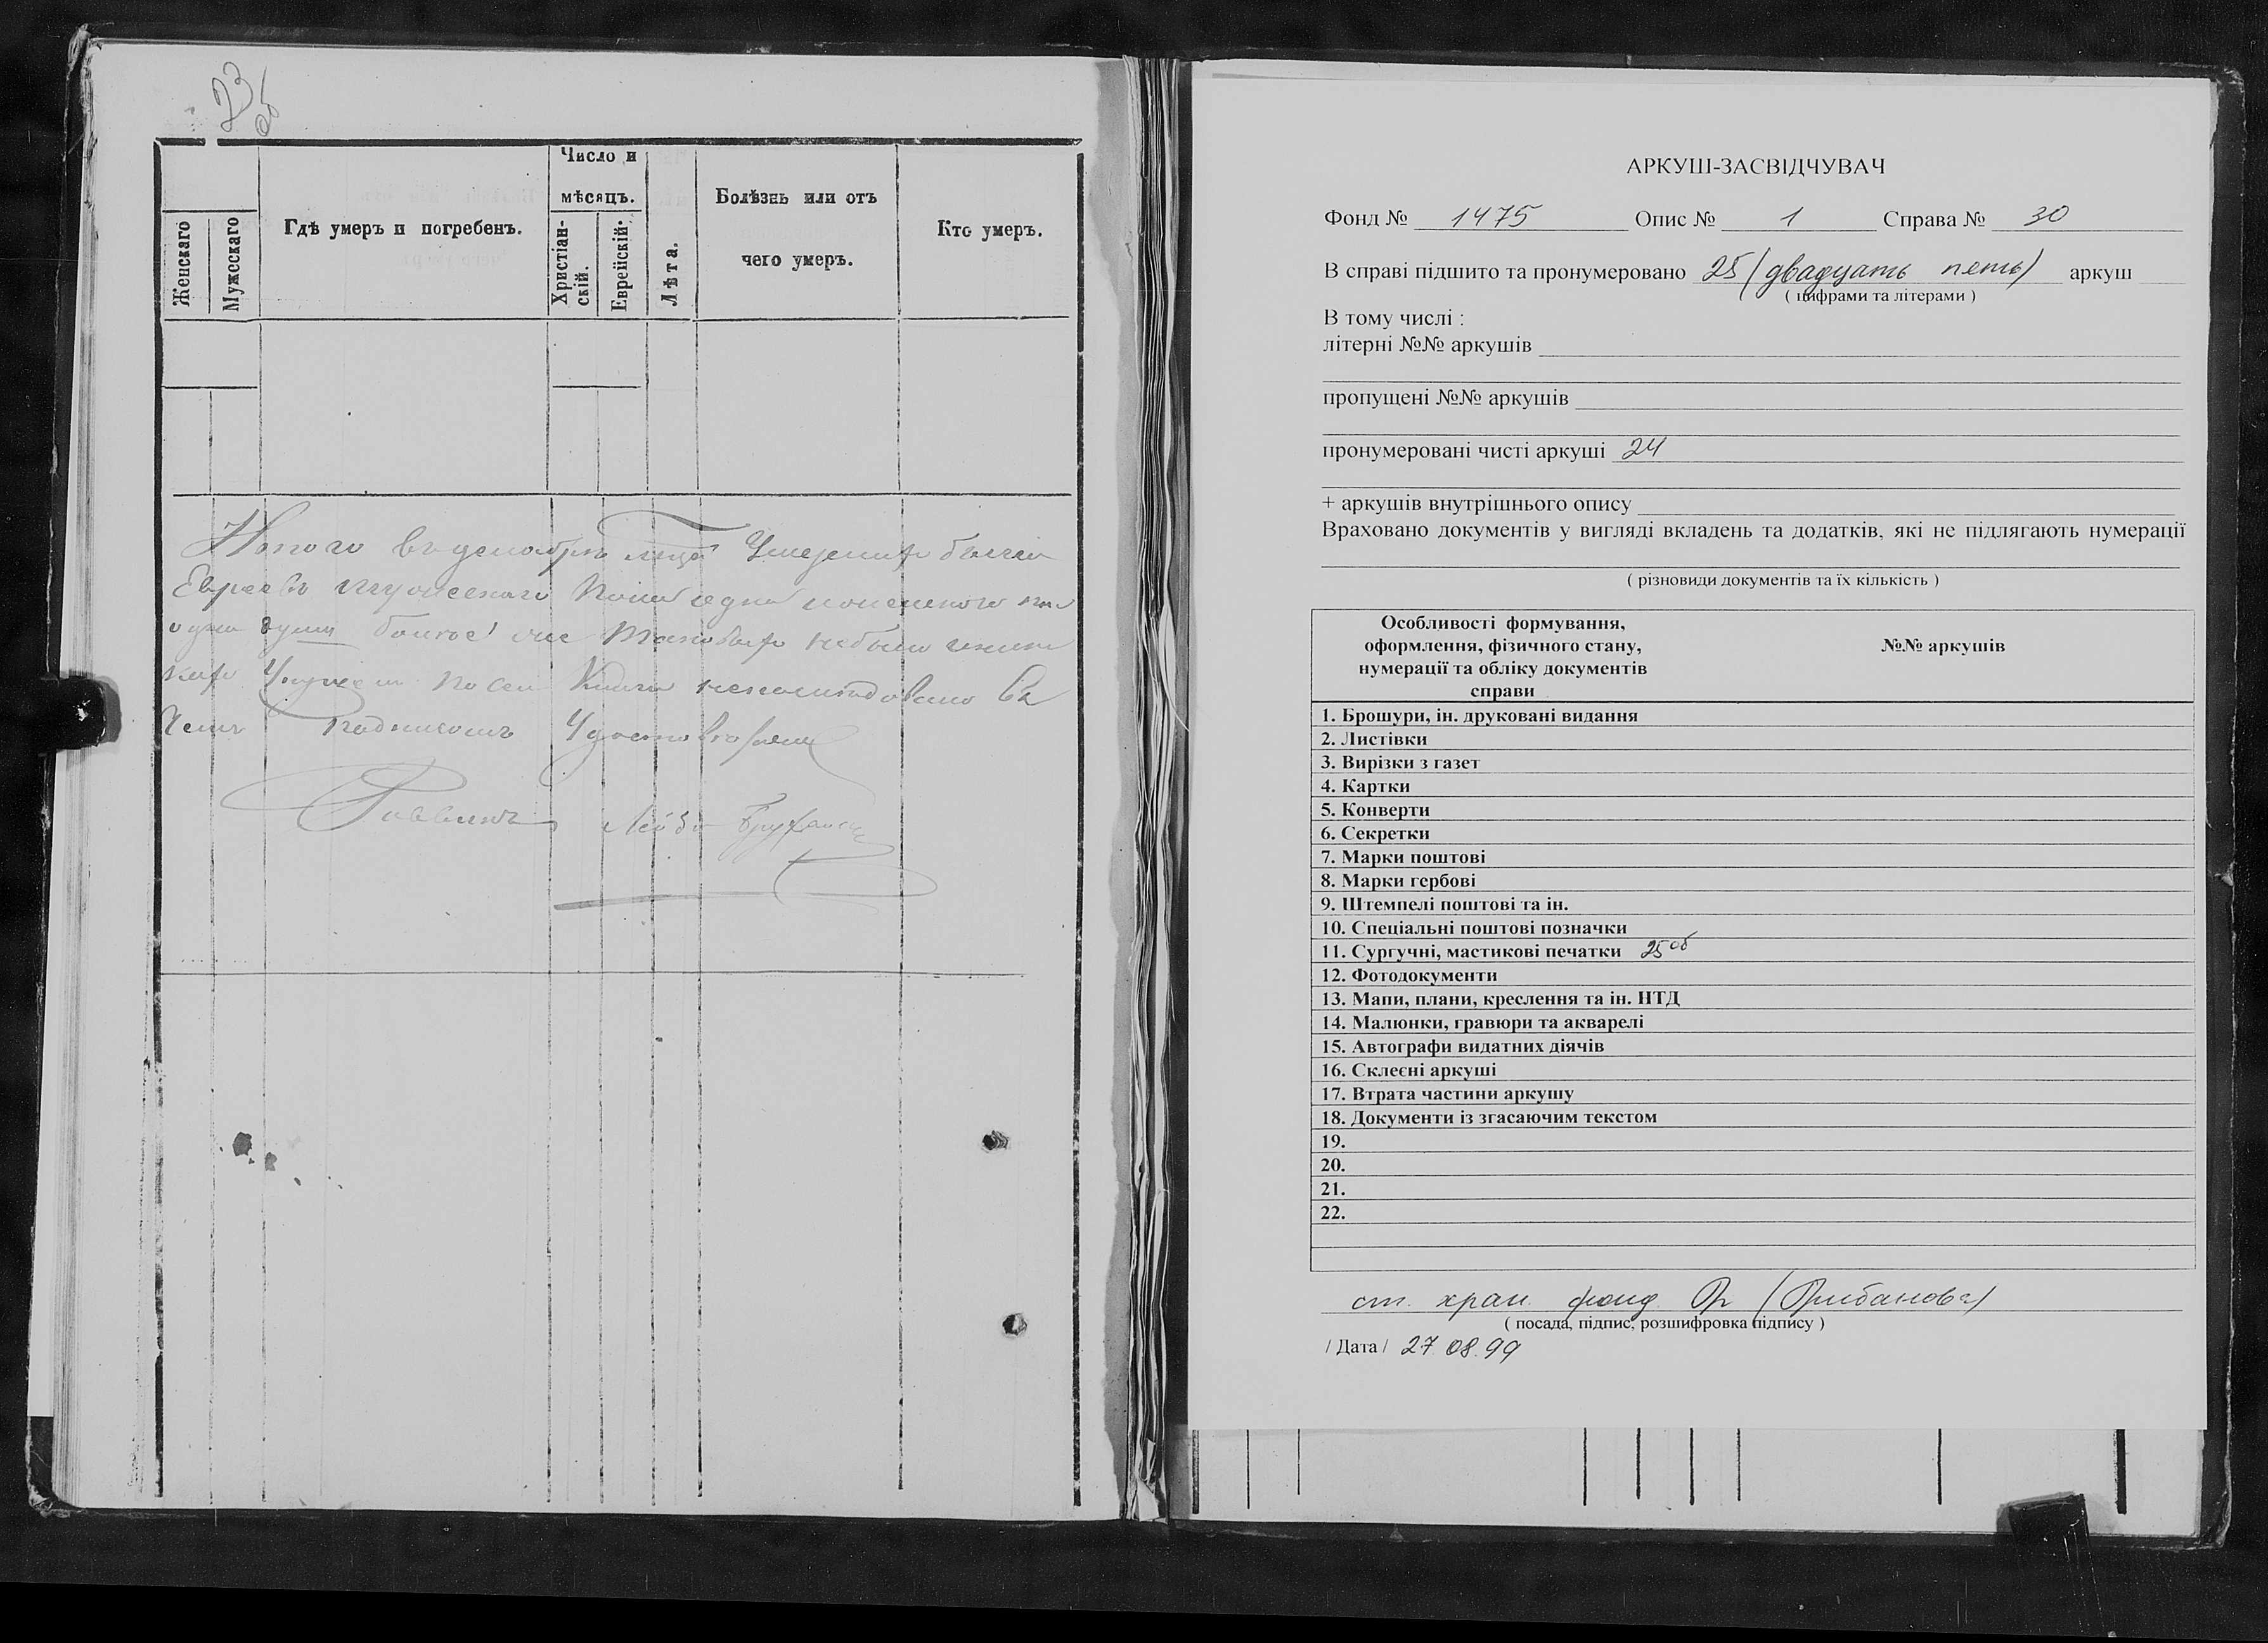 23
об
Женскаго
Мужескаго
Гдѣ умеръ и погребенъ.
Число и
мѣсяцъ.
Христіан-
скій.
Еврейскій.
Лѣта.
Болѣзнь или отъ
чего умеръ.
Кто умеръ.
Итого въ декабрѣ Умершихъ было
Евреевъ мужескаго пола одна женскаго
одна душа больше не было
Умерших по сей Книге въ
чемъ подписомъ Удостоверяем
Раввинъ Лейба
АРКУШ-ЗАСВІДЧУВАЧ
Фонд № 1475 Опис № 1 Справа № 30
В справі підшито та пронумеровано 25 (двадцать пять) аркуш
( цифрами та літерами )
В тому числі :
літерні №№ аркушів
пропущені №№ аркушів
пронумеровані чисті аркуші 24
+ аркушів внутрішнього опису
Враховано документів у вигляді вкладень та додатків, які не підлягають нумерації
( різновиди документів та їх кількість )
Особливості формування,
оформлення, фізичного стану,
нумерації та обліку документів
справи
№№ аркушів
1. Брошури, ін. друковані видання
2. Листівки
3. Вирізки з газет
4. Картки
5. Конверти
6. Секретки
7. Марки поштові
8. Марки гербові
9. Штемпелі поштові та ін.
10. Спеціальні поштові позначки
11. Сургучні, мастикові печатки 25об
12. Фотодокументи
13. Мапи, плани, креслення та ін. НТД
14. Малюнки, гравюри та акварелі
15. Автографи видатних діячів
16. Склеєні аркуші
17. Втрата частини аркушу
18. Документи із згасаючим текстом
19.
20.
21.
22.
ст. хран. фонд.
( посада, підпис, розшифровка підпису )
/ Дата / 27.08.99